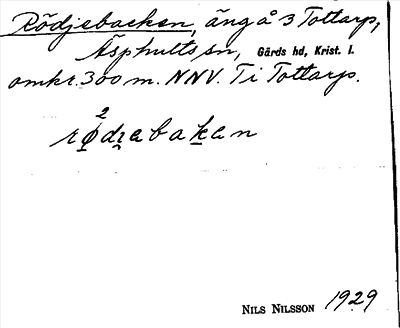 Rödjebacken, äng å 3 Tottarp,
Äsphults sn, Gärds hd, Krist. l.
omkr. 300 m. NNV. T i Tottarp.
2
rødɪabakan
NILS NILSSON 1929